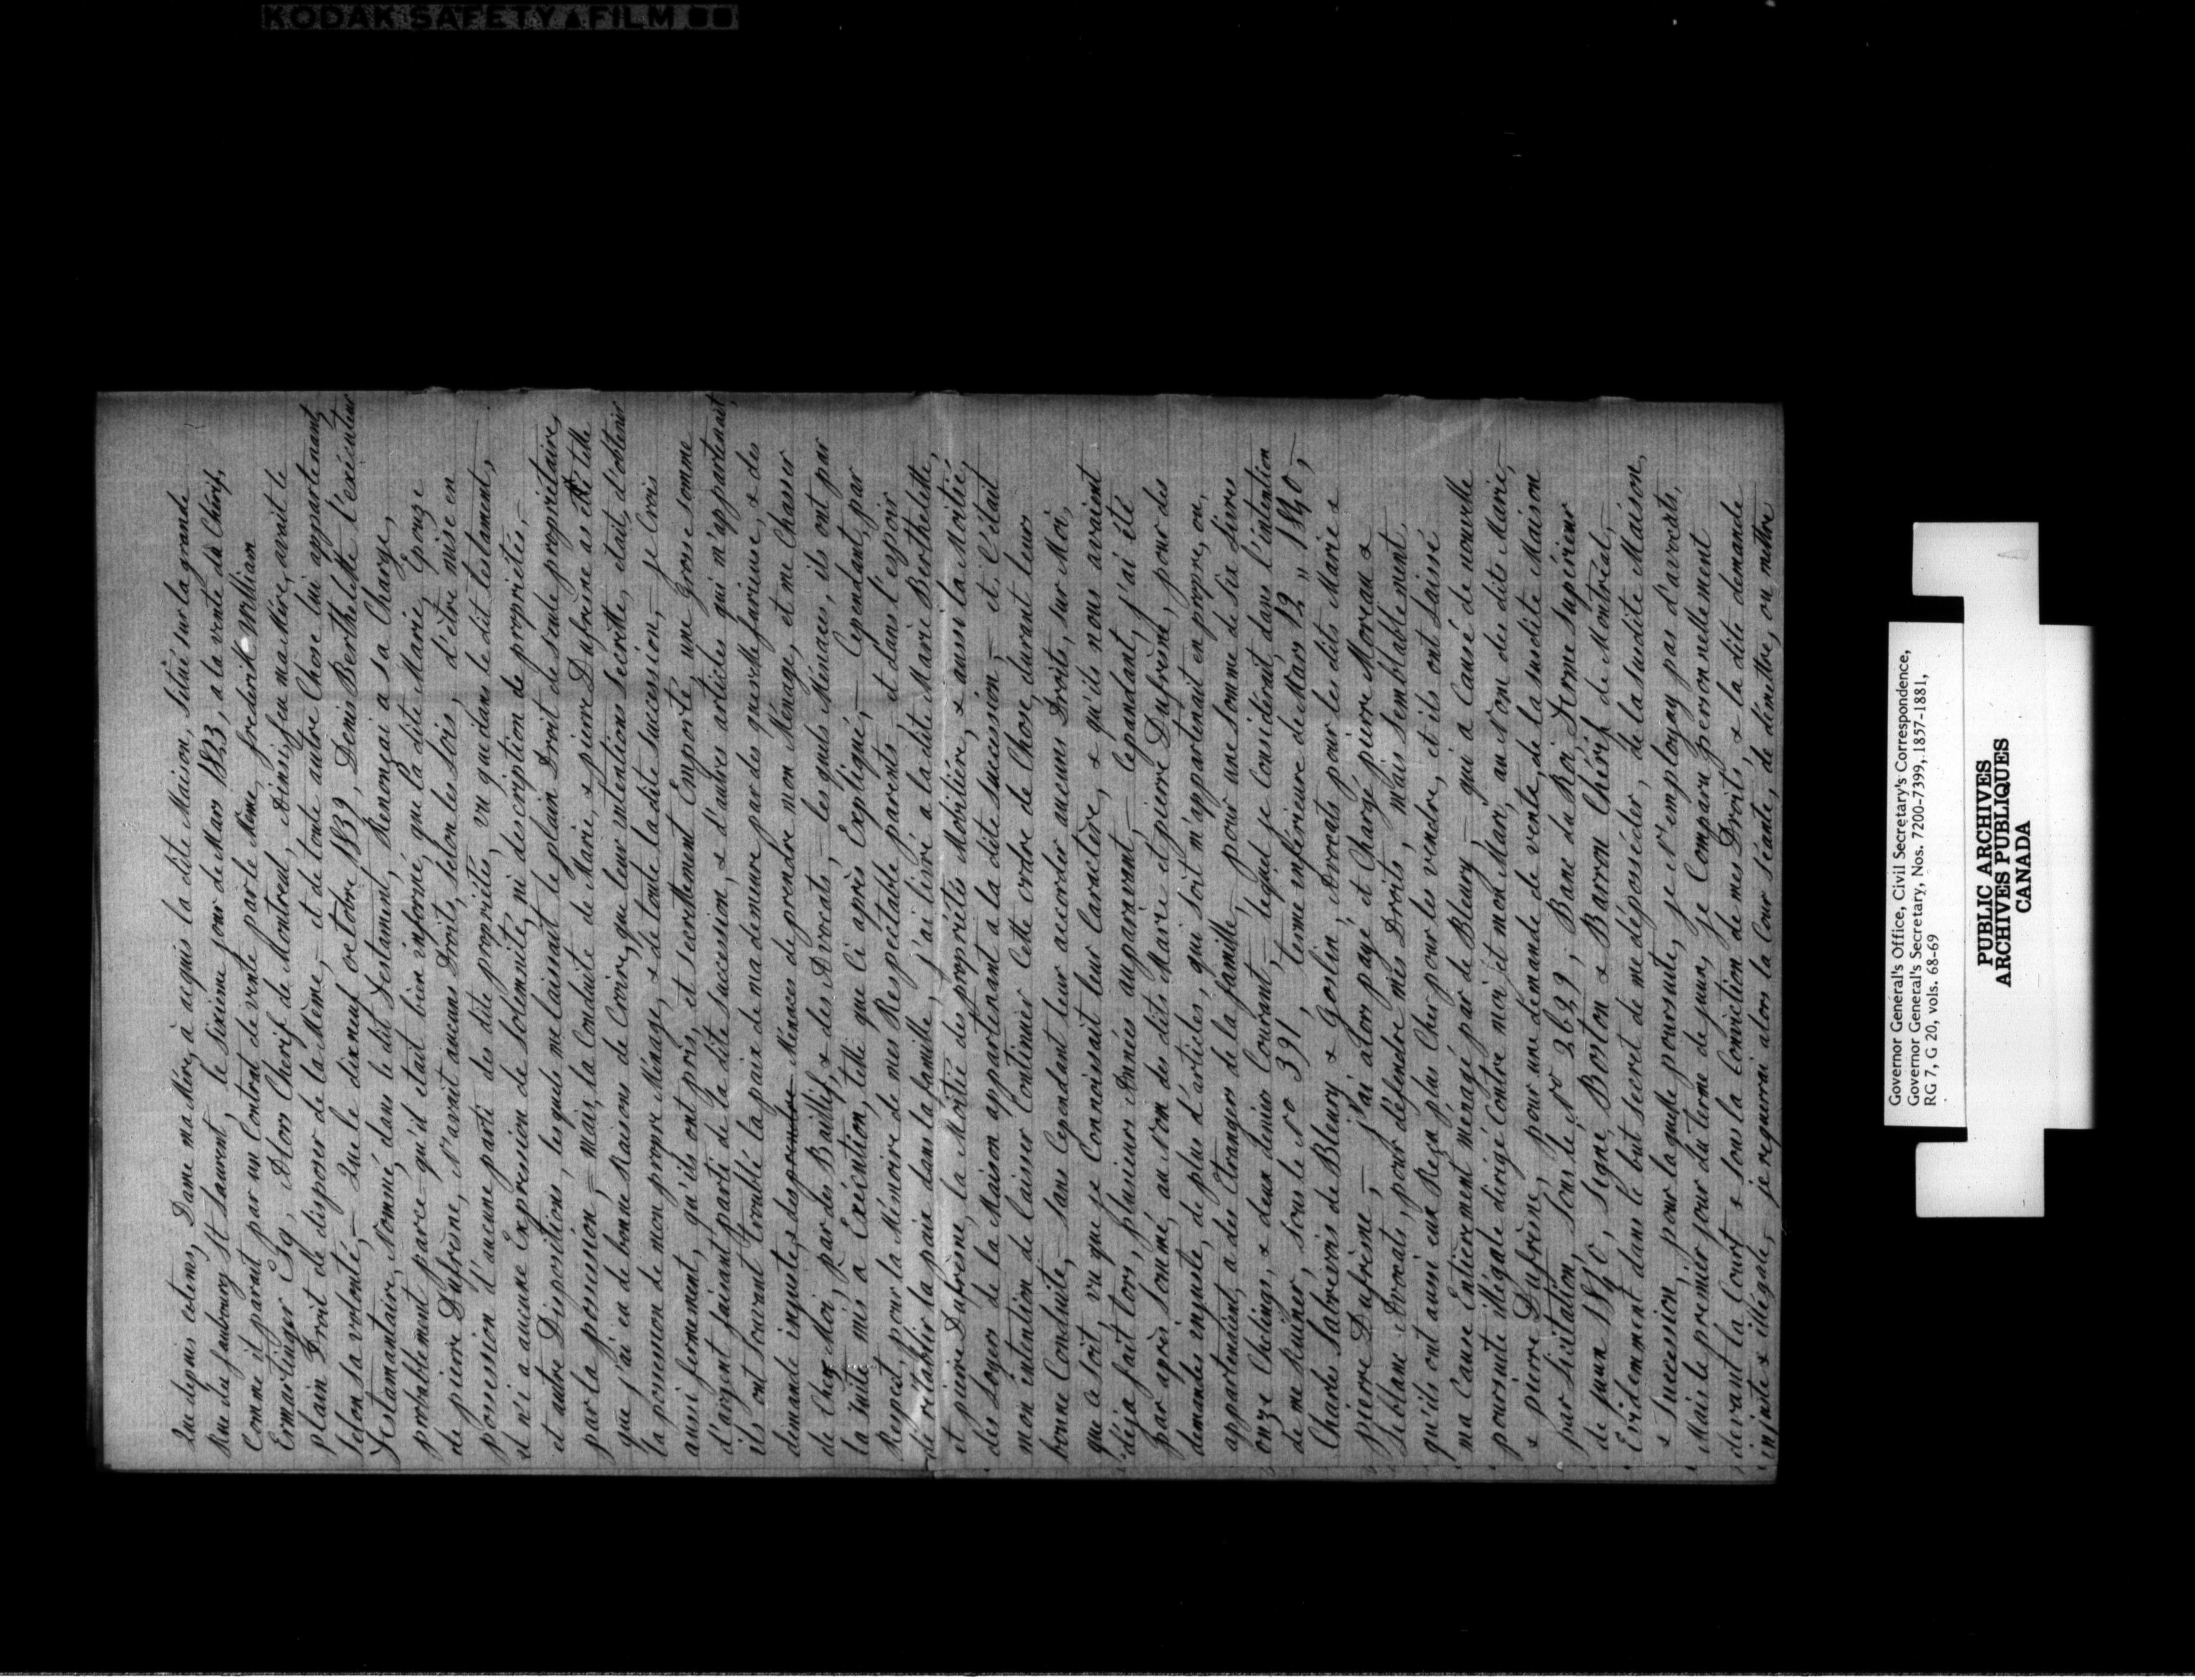 KODAK SAFETY FILM
Que depuis ectems, Dame ma Mère, à acquis la dite Maison, Situé sur la grande
Rue du faubourg St Laurent, le Sixieme jour de Mars 1823, a la vente du Chérif,
Comme il parait par un Contrat de vente par le Même, frederick William
Ermartinger Esq, Alors Cherif de Montreal, Ainsi, feu ma Mère, avait le
plain Droit de disposer de la Même, et de toute autre Chose lui appartenant,
Selon sa volonté, – Que le dixneuf octobre 1839, Denis Berthelette l'exécuteur
Testamentaire, Nommé dans le dit Testament, Renonçai a sa Charge,
probablement parce qu'il etait bien informé, que la dite Marie, Epouze
de pierre Dufrèsne, N'avait aucuns Droits, Selon les Lois, d'être mise en
possession d'aucune parti des dite propriétés, vu que dans le dit testament,
il n'i a aucune Expression de Solemnité, ni description de propriétés, –
et autre Dispositions, les quels me laissait le plain Droit de seule propriétaire,
par la possession, – Mais, la Conduite de Marie, & pierre Dufrèsne as été telle
que j'ai eu de bonne Raisons de Croire, que leur intentions Secrette, etait, d'obtenir
la possession de mon propre Ménage, & de toute la dite succession, – je Crois
aussi fermement, qu'ils ont pris, et secrettement Emporté une Grosse somme
d'argent faisant parti de la dite Succession, & d'autres articles qui m'appartenait,
ils ont souvant troublé la paix de ma demeure par des querelle furieuse, & des
demande injustes, des Ménaces de prendre mon Ménage, et me Chasser
de Chez Moi, par des Baillifs, & des Avocats, – les quels Ménaces, ils ont par
la suite mis a Exécution, telle que Ci après Expliqué, – Cependant, par
Respect, pour la Mémoire de mes Respectable parents et dans l'espoir
de rétablir la paix dans la famille, j'ai livré a la dite Marie Berthelette,
et pierre Dufrèsne, la Moitié des propriétés Mobilière, & aussi la Moitié
des Loyer de la Maison appartenant a la dite succession, – et C'était
mon intention de laisser Continuer Cette ordre de Chose, durant leur
bonne Conduite, – Sans Cependant leur accorder aucuns Droits, sur Moi,
que ce soit, vu que je Connaissait leur Caractère, & qu'ils nous avaient
déja fait tors, plusieurs Années auparavant, – Cependant, j'ai été
par après Sommé, au Nom des dits Marie et pierre Dufrèsne, pour des
demandes injuste, de plus d'articles, qui soit m'appartenait en propre, ou,
appartenaint, a des Etrangers de la famille, pour une Somme de Six Livres
onze Chelings, & deux denier Courant, – lequel je Considérait, dans l'intention
de me Ruiner, sous le No 391, terme inférieure de Mars 12 " 1840 –,
Charles Sabrevois de Bleury & Gosslin, Avocats pour les dits Marie &
pierre Dufrèsne, – j'ai alors payé et Chargé pierre Moreau &
Leblanc Avocats, pour défendre mes Droits, mais semblablement,
qu'ils ont aussi eux Reçu plus Cher pour les vendre, et ils ont laissé
ma Cause Entièrement ménagé par de Bleury, – qui a Causé de nouvelle
poursuite illégale dirigé Contre moi et mon Mari, au Nom des dits Marie,
& pierre Dufrèsne, pour une demande de vente, de la susdite Maison
par Licitation, sous le No 2629, Banc du Roi, Terme supérieur
de juin 1840, signé, Boston & Barron Chérif de Montréal, –
Evidemment dans le but secret de me déposséder, de la susdite Maison,
& Succession, pour laquelle poursuite, je N'employay pas d'avocats,
Mais le premier jour du terme de juin, je Comparu personnellement
devant la Court & sous la Conviction de mes Droits, & la dite demande
injuste & illégale, je requerrai alors la Cour séante, de démettre, ou mettre
Governor General's Office, Civil Secretary's Correspondence,
Governor General's Secretary, Nos. 7200-7399, 1857-1881,
RG 7, G 20, vols. 68-69
PUBLIC ARCHIVES
ARCHIVES PUBLIQUES
CANADA